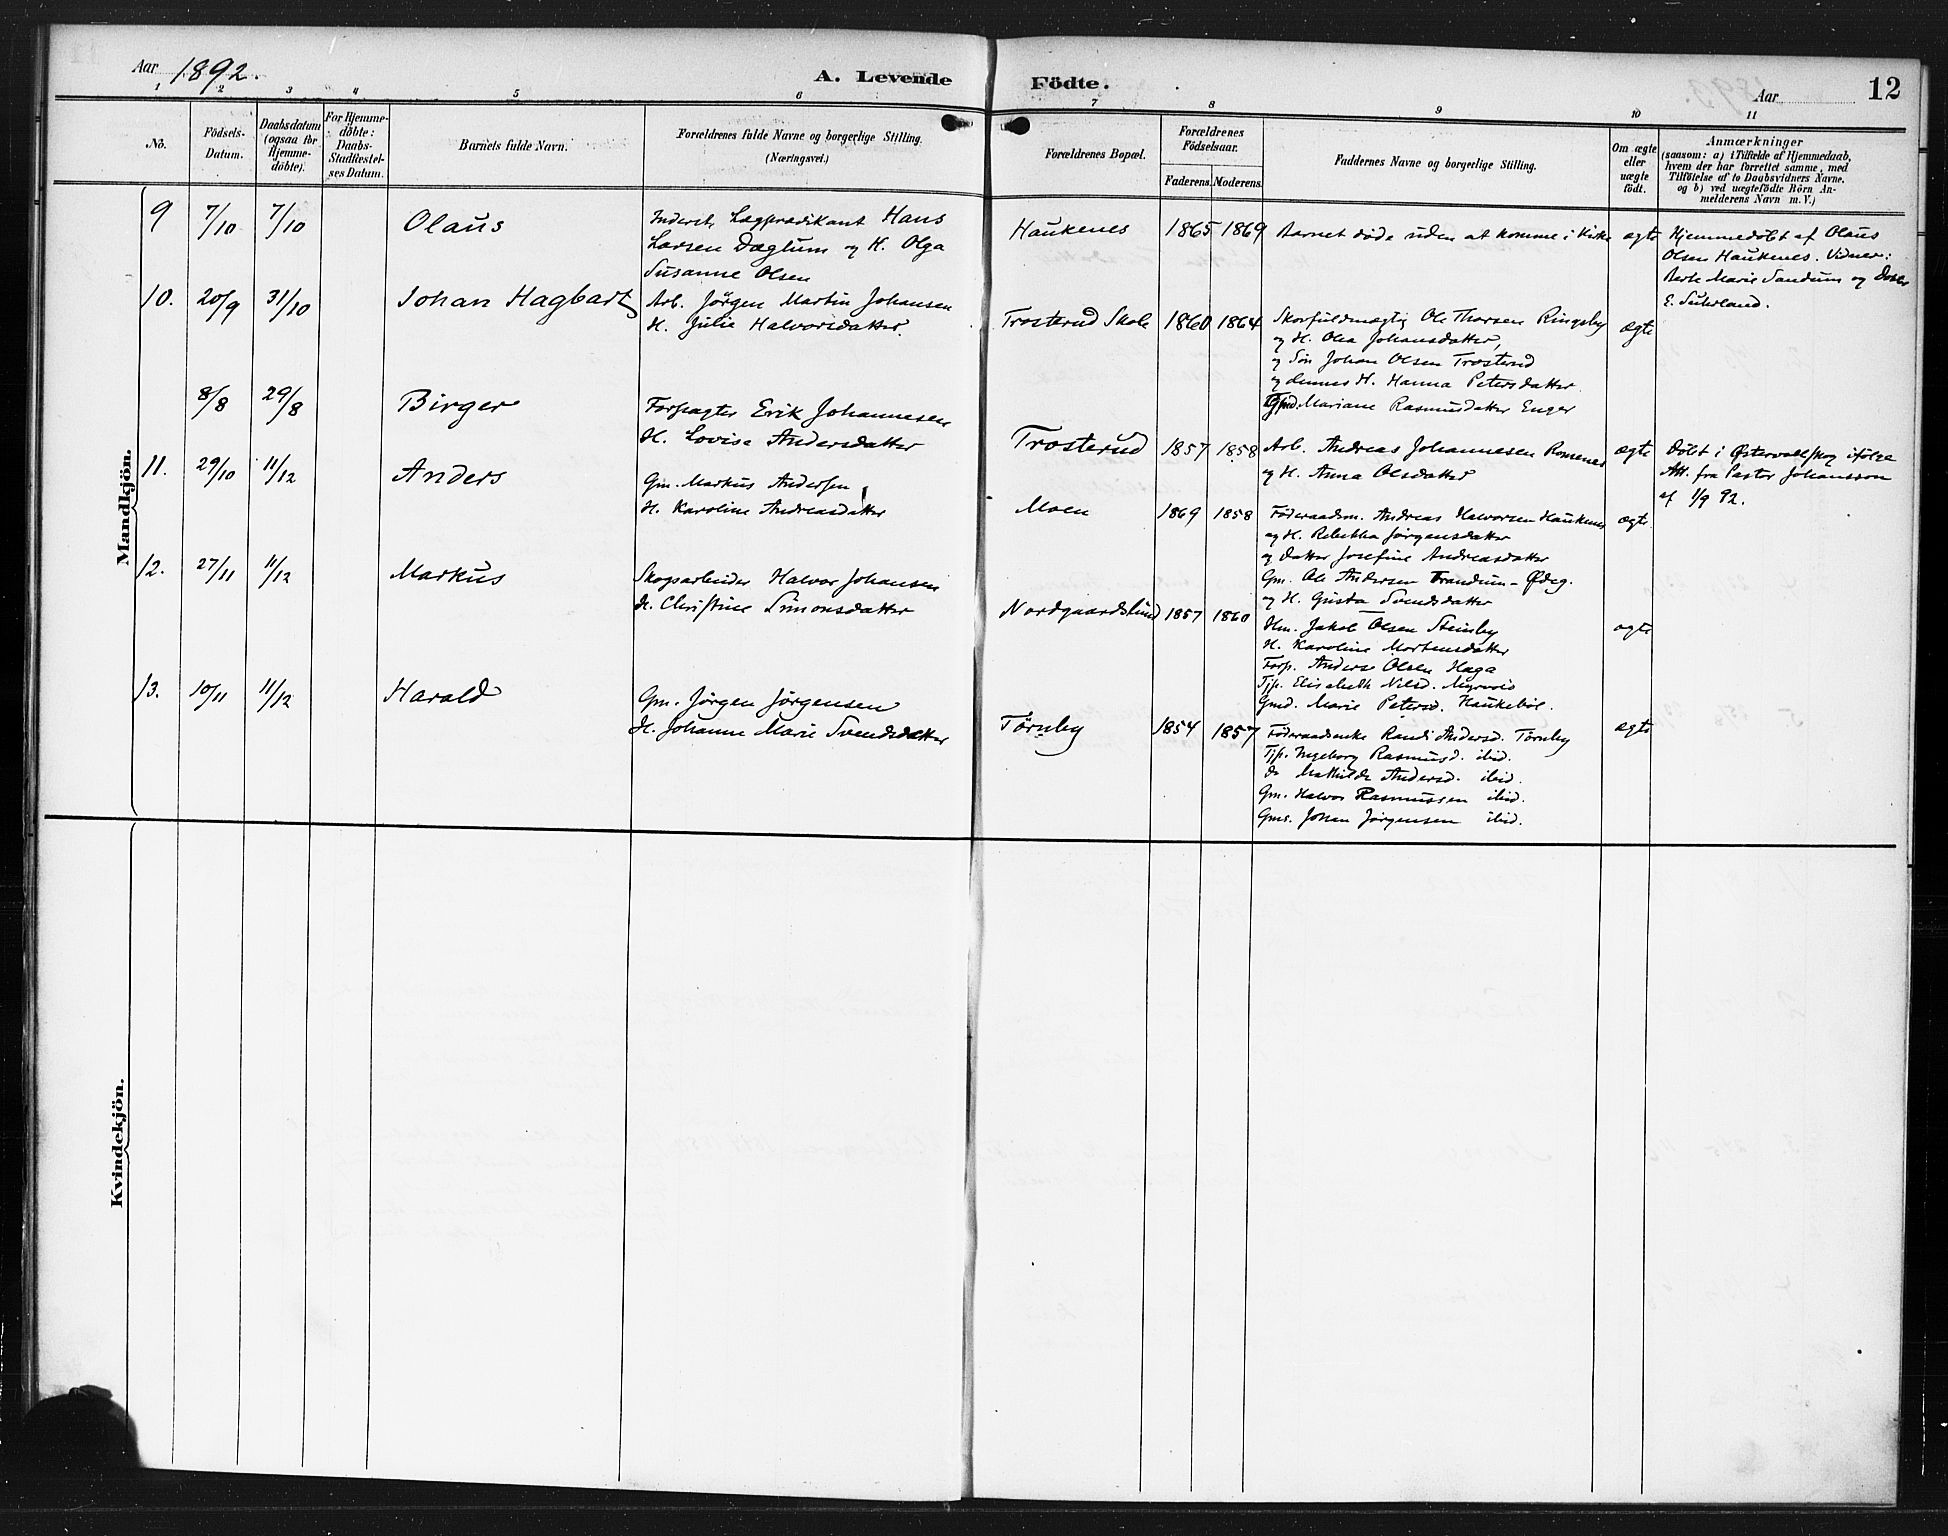 Aar 1892.
A. Levende Födte.
Aar
12
1 2 3 4 5 6 7 8 9 10 11
No.
Födsels-Datum.
Daabsdatum (ogsaa for Hjemme-döbte).
For Hjemme-döbte: Daabs-Stadfæstel-ses Datum.
Barnets fulde Navn.
Forældrenes fulde Navne og borgerlige Stilling.
(Næringsvei.)
Forældrenes Bopæl.
Forældrenes Födselsaar.
Faderens. Moderens.
Faddernes Navne og borgerlige Stilling.
Om ægte eller uægte født.
Anmærkninger
(saasom: a) i Tilfælde af Hjemmedaab,
hvem der har forrettet samme, med
Tilföielse af to Daabsvidners Navne.
og b) ved uægtefödte Börn An-
melderens Navn m. V.)
Mandkjön.
9 7/10 7/10 Olaus
Inderst, Lægprædikant Hans
Larsen Dæglum og H. Olga
Susanne Olsen
Haukenes 1865 1869
Barnet døde uden at komme i Kirke
ægte
Hjemmedøbt af Olaus
Olsen Haukenes. Vidner:
Berte Marie Sandum og
E. Suterland.
10. 20/9 31/10 Johan Hagbart
Arb. Jørgen Martin Johansen
H. Julie Halvorsdatter.
Trosterud Skole 1860 1864
Skovfuldmægtig Ole Thorsen Ringsby
og H. Olea Johansdatter,
og Søn Johan Olsen Trosterud
og dennes H. Hanna Petersdatter
Gmd. Mariane Rasmusdatter Enger
ægte
8/8 29/8 Birger
Forpagter Erik Johannesen
H. Lovise Andersdatter
Trosterud 1857 1858
Arb. Andreas Johannesen Romenes
og H. Anna Olsdatter
ægte
Døbt i Østervallskog ifølge
Att. fra Pastor Johansson
af 1/9 92.
11. 29/10 11/12 Anders
Gm. Markus Andersen
H. Karoline Andreasdatter
Moen 1869 1858
Føderaadsm. Andreas Halvorsen Haukenes
og H. Rebekka Jørgensdatter
og Datter Josefine Andreasdatter
Gm. Ole Andersen Trandum-Ødeg.
og H. Gusta Svendsdatter
ægte
12. 27/11 11/12 Markus
Skogsarbeider Halvor Johansen
H. Christine Simonsdatter
Nordgaardslund 1857 1860
Hm. Jakob Olsen Steinby
H. Karoline Mortensdatter
Forp. Anders Olsen Haga
Tjp. Elisabeth Nilsd. Myrvold
Gmd. Marie Petersd. Haukebøl.
ægte
13. 10/11 11/12 Harald
Gm. Jørgen Jørgensen
H. Johanne Marie Svendsdatter
Tørnby 1854 1857
Føderaadsenke Randi Andersd. Tørnby
Tjp. Ingeborg Rasmusd. ibid.
do Mathilde Andersd. ibid.
Gm. Halvor Rasmussen ibid.
Gms. Johan Jørgensen ibid.
ægte
Kvindekjön.